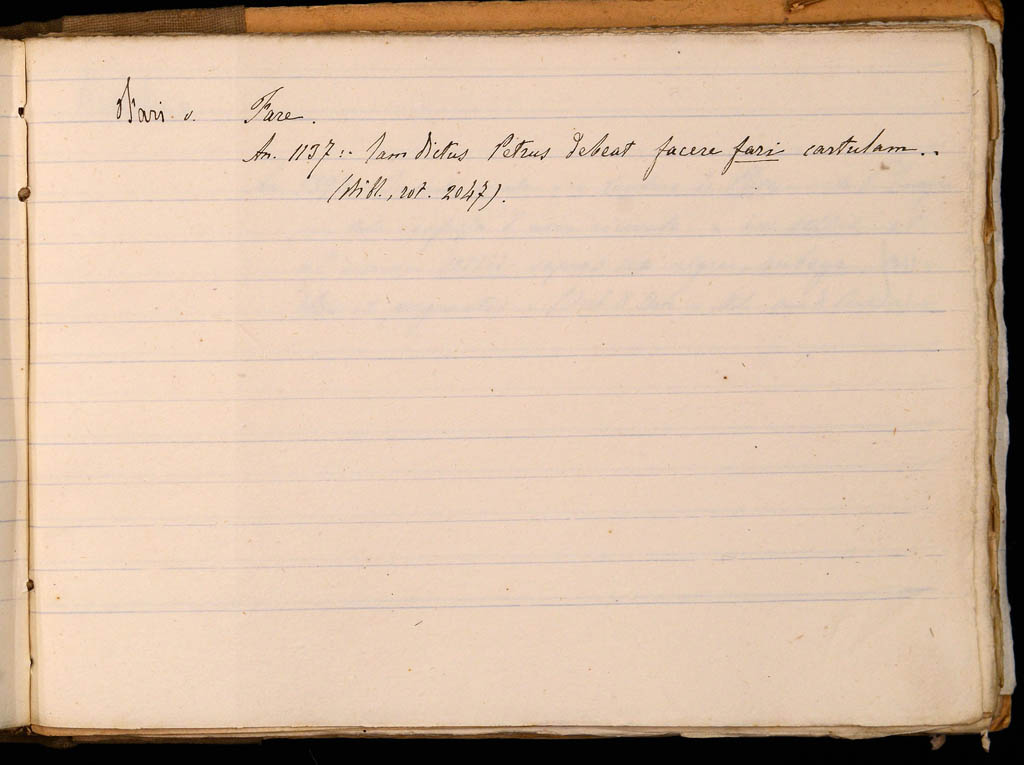 Fari v. Fare.
An. 1137:- Iam dictus Petrus debeat facere fari cartulam..
(Bibl., rot. 2047).